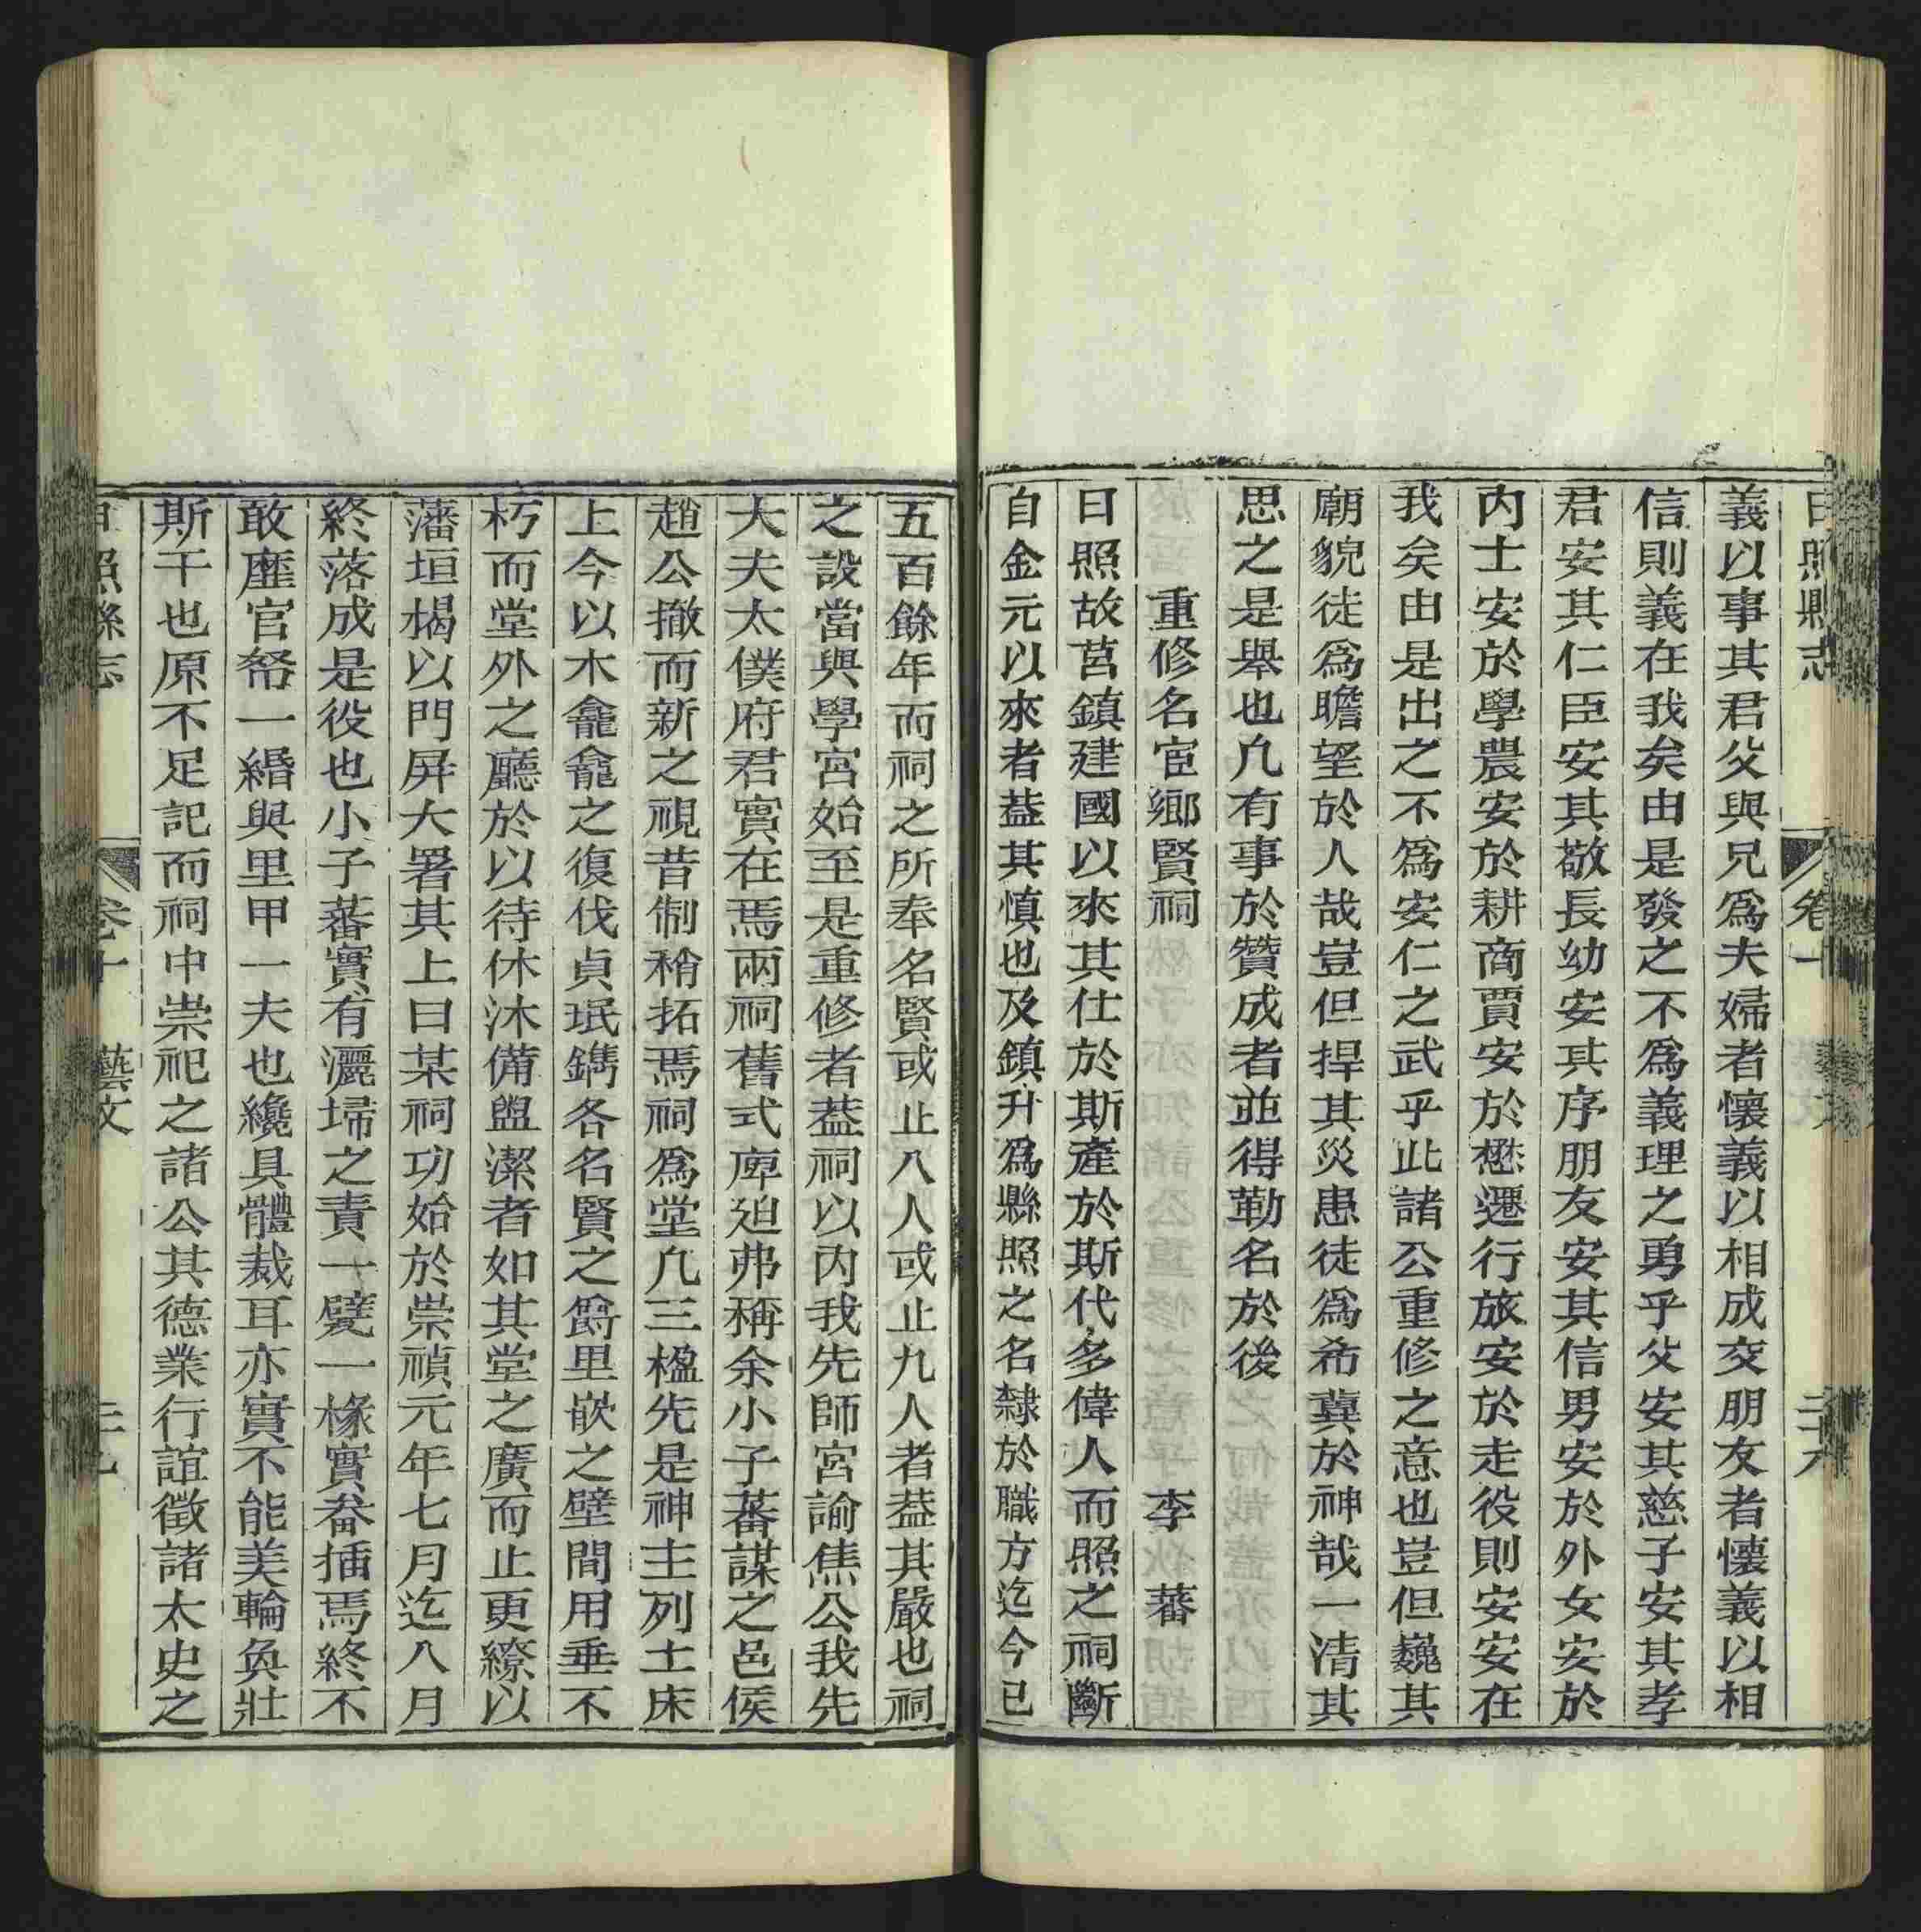 日照縣志 卷十 藝文
義以事其君父與兄爲夫婦者懷義以相成交朋友者懷義以相
信則義在我矣由是發之不爲義理之勇乎父安其慈子安其孝
君安其仁臣安其敬長幼安其序朋友安其信男安於外女安於
内士安於學農安於耕商賈安於懋遷行旅安於走役則安安在
我矣由是出之不爲安仁之武乎此諸公重修之意也豈但巍其
廟貌徒爲瞻望於人哉豈但捍其災患徒爲希冀於神哉一清其
思之是舉也凢有事於贊成者並得勒名於後
重修名宦鄉賢祠 李 蕃
日照故莒鎮建國以來其仕於斯產於斯代多偉人而照之祠斷
自金元以來者葢其慎也及鎮升爲縣照之名隸於職方迄今已
五百餘年而祠之所奉名賢或止八人或止九人者葢其嚴也祠
之設當與學宮始至是重修者葢祠以内我先師宮諭焦公我先
大夫太僕府君實在焉兩祠舊式庳廹弗稱余小子蕃謀之邑侯
趙公撤而新之視昔制稍拓焉祠爲堂凢三楹先是神主列土床
上今以木龕龕之復伐貞珉鐫各名賢之爵里嵌之壁間用垂不
朽而堂外之廳於以待休沐備盥潔者如其堂之廣而止更繚以
藩垣楬以門屏大署其上曰某祠功始於崇禎元年七月迄八月
終落成是役也小子蕃實有灑埽之責一甓一椽實畚挿焉終不
敢靡官帑一緡與里甲一夫也纔具體裁耳亦實不能美輪奐壯
斯干也原不足記而祠中崇祀之諸公其德業行誼徵諸太史之
日照縣志 卷十 藝文